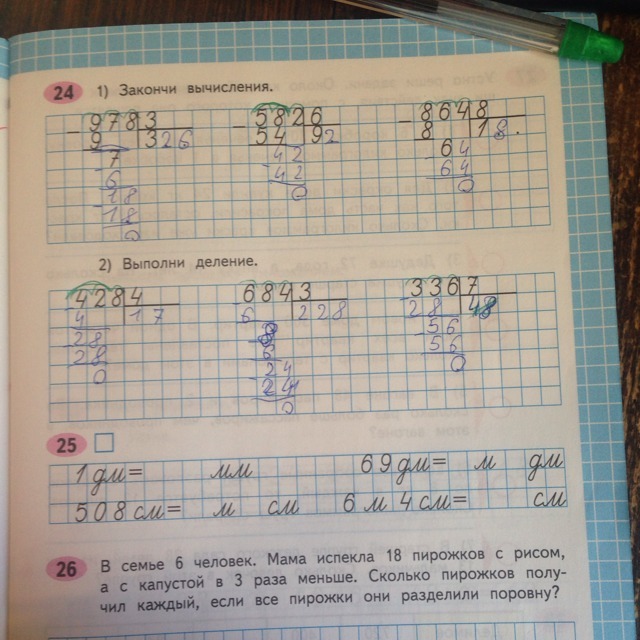 24 1) Закончи вычисления.
978 3 582 6 864 8
9 326 54 92 8 18.
7 42 64
6 42 64
18 0 0
18
0
2) Выполни деление.
428 4 684 3 336 7
4 17 6 228 28 48
28 8 56
28 6 56
0 24 0
24
0
25
1 дм= мм 69 дм= м дм
508 см= м см 6 м 4 см= см
26 В семье 6 человек. Мама испекла 18 пирожков с рисом,
а с капустой в 3 раза меньше. Сколько пирожков полу-
чил каждый, если все пирожки они разделили поровну?